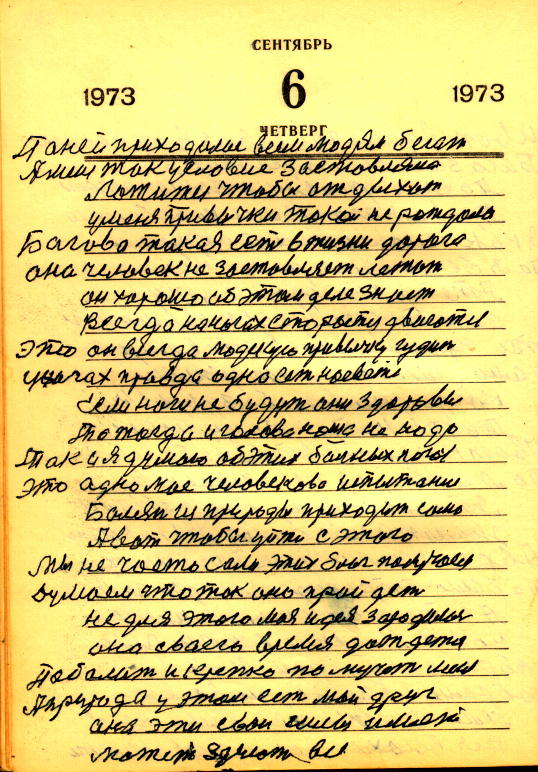 СЕНТЯБРЬ
1973 6 1973
ЧЕТВЕРГ
По ней приходилос всем людям бегат
А меня так условие заставляла
Лотити чтобы отдыхат
у меня привычки такой не рождало
Багова такая ест в жизни дорога
она человек не заставляет летат
он хорошо об этом деле знает
Всегда на ногах старости
это он всегда людскую привычку судит
правда одна ест на свете
Если ноги не будут они здоровы
То тогда и голова наша не надо
Так и я думаю об этих балных ногах
это адно мое человеково испитание
Балезни природы приходят само
А вот чтобы уйти с этого
Мы не часто сами этих получаем
Думаем что так оно пройдет
не для этого моя идея зародилас
она сваего время дождется
Поболит и крепко помучит меня
А природа у этом ест мой друг
она эти свои силы имеет
может здиеат вси